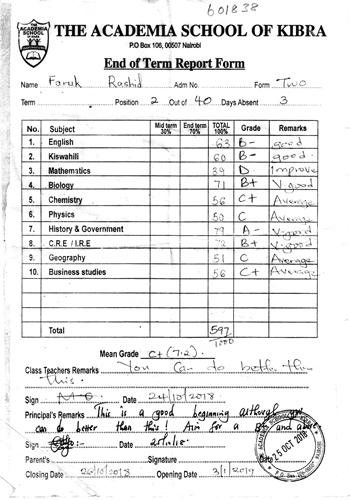 601838
ACADEMIA SCHOOL OF KIBRA
THE ACADEMIA SCHOOL OF KIBRA
P.O Box 106, 00507 Nairobi
End of Term Report Form
Name Faruk Rashid Adm No. Form Two
Term Position 2 Out of 40 Days Absent 3
No. Subject Mid term 30% End term 70% TOTAL 100% Grade Remarks
1. English 63 B- good
2. Kiswahili 60 B- good.
3. Mathematics 39 D. Improve
4. Biology 71 B+ V.good
5. Chemistry 56 C+ Average
6. Physics 50 C Average
7. History & Government 79 A- V-good
8. C.R.E / I.R.E 72 B+ V-good
9. Geography 51 C Average
10. Business studies 56 C+ Average
Total 597
1000
Mean Grade C+ (7.2).
Class Teachers Remarks You Can do better than
this.
Sign Date 24/10/2018
Principal's Remarks This is a good beginning although you
can do better than this! Aim for a B+ and above
Sign Date
Parent's Signature
Closing Date 26/10/2018 Opening Date 3/1/2019
25 OCT 2018